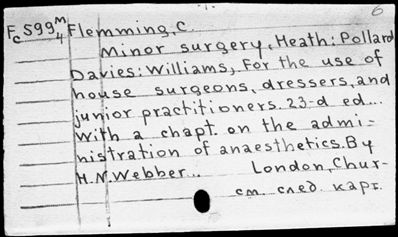 6
Fc S99 M/4 Flemming, C.
Minor surgery, Heath: Pollard
Davies: Williams, For the use of
house surgeons, dressers, and
junior practitioners. 23-d ed...
With a chapt. on the admi-
nistration of anaesthetics. By
H.N. Webber... London, Chur-
см. след. карт.